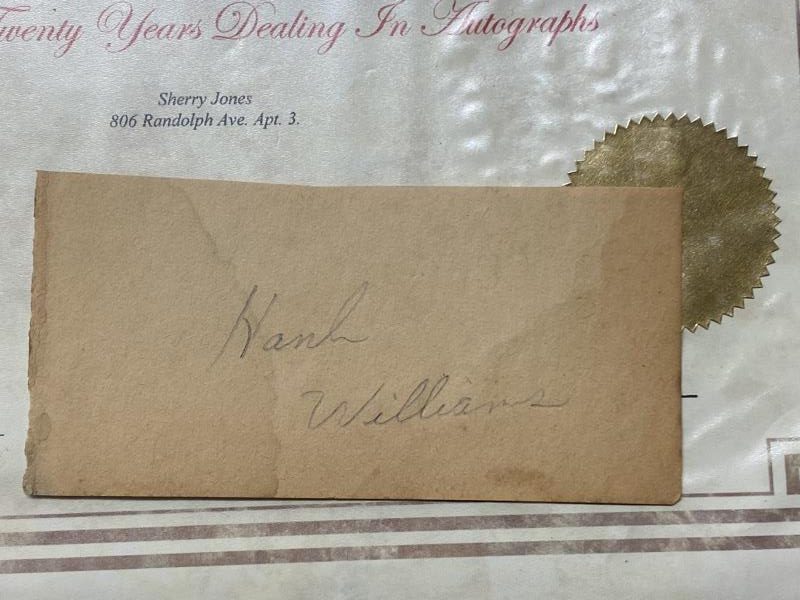 Twenty Years Dealing In Autographs
Sherry Jones
806 Randolph Ave. Apt. 3.
Hank
Williams